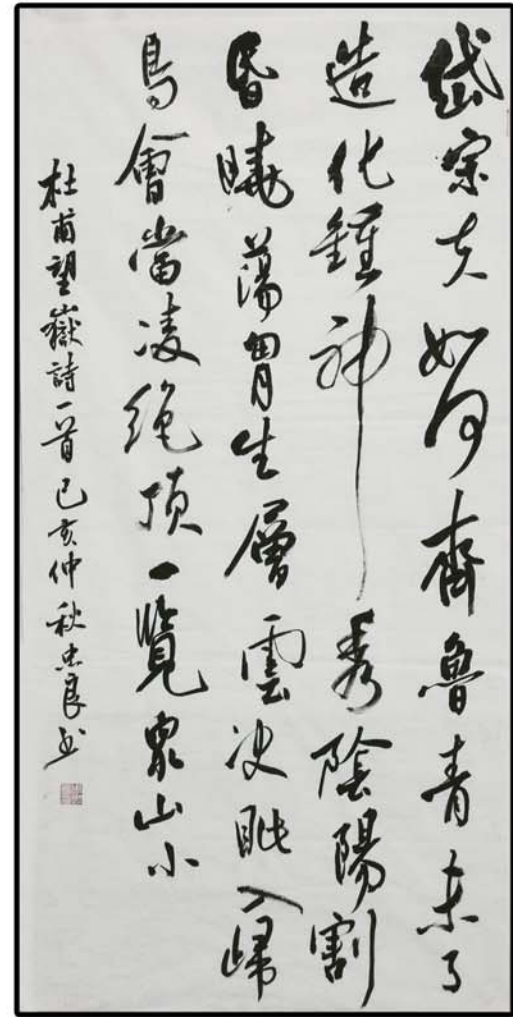 岱宗夫如何齊魯青未了
造化鍾神秀陰陽割
昏曉蕩胷生層雲決眦入歸
鳥會當凌絕頂一覽衆山小
杜甫望嶽詩一首己亥仲秋忠良書